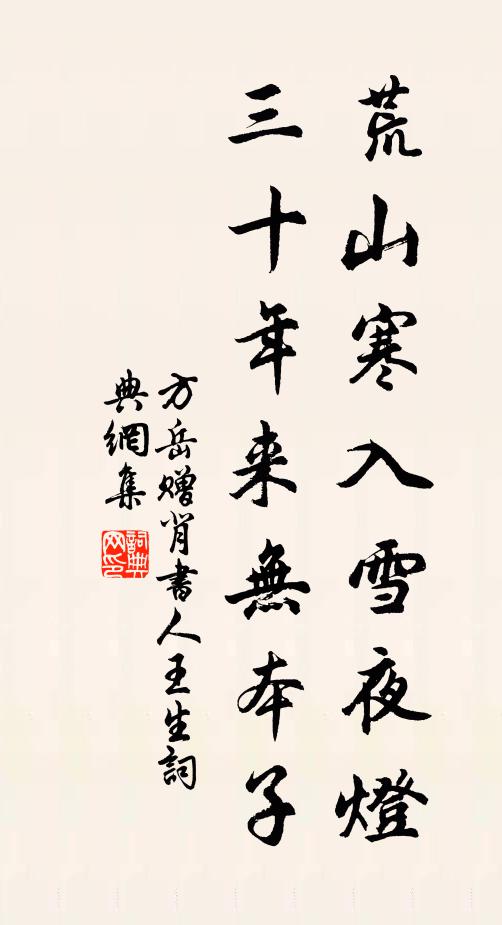 荒山寒入雪夜燈
三十年来無本子
方岳赠肖書人王生詞
典網集
詞典网印